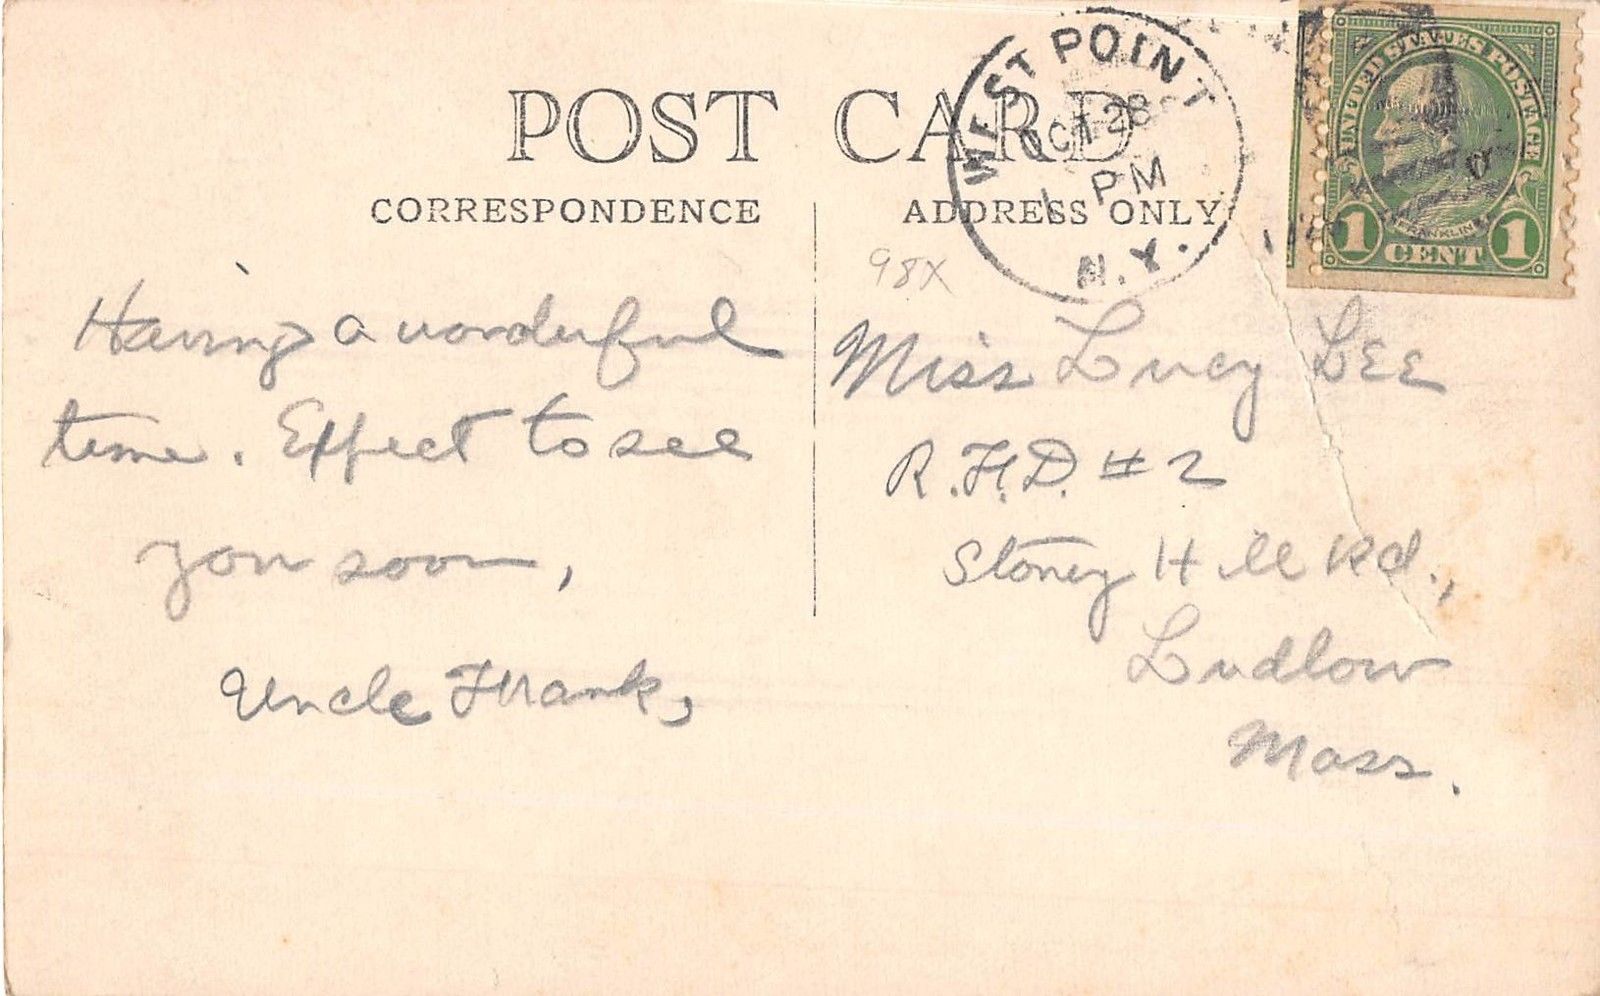 POST CARD
CORRESPONDENCE
ADDRESS ONLY
WEST POINT
OCT 28
1 PM
N.Y.
UNITED STATES POSTAGE
FRANKLIN
1 CENT 1
98X
Having a wonderful
time. Expect to see
you soon,
Uncle Frank,
Miss Lucy Lee
R.F.D. #2
Stoney Hill Rd.,
Ludlow
Mass.